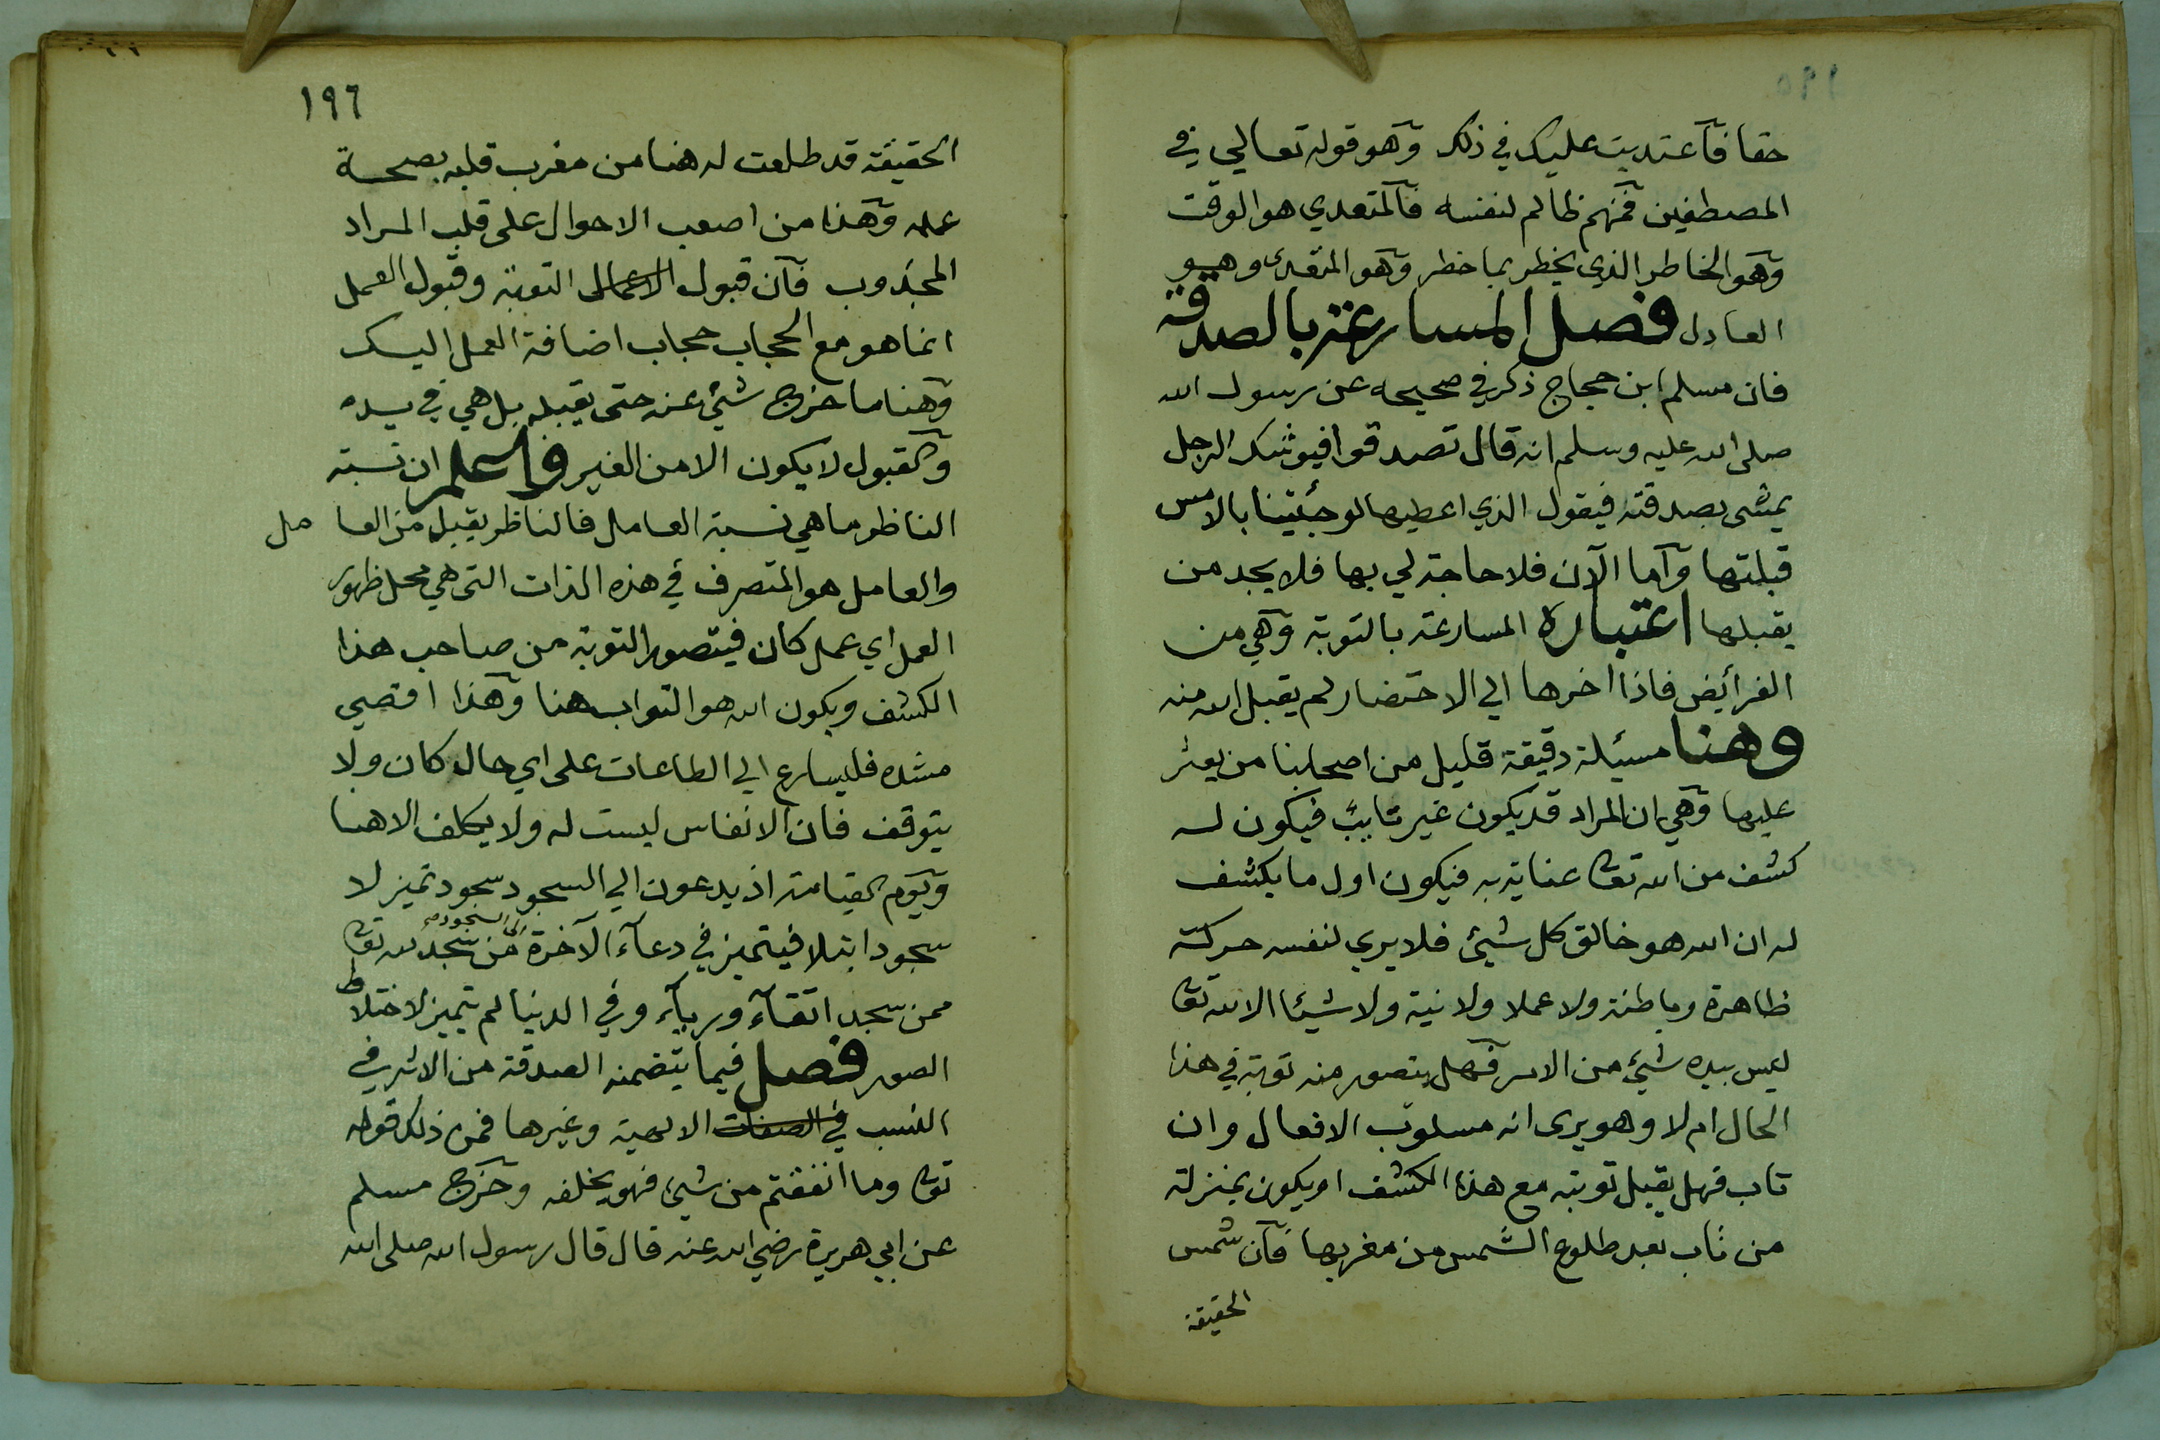 حقا فآعتديت عليك في ذلك وهو قوله تعالي في
المصطفين فمنهم ظالم لنفسه فآلمتعدي هو الوقت
وهو الخاطر الذي يخطر بما خطر وهو المتعدى وهو
العادل فصل المسارعة بالصدقة
فان مسلم ابن حجاج ذكر في صحيحه عن رسول الله
صلى الله عليه وسلم انه قال تصدقوا فيوشك الرجل
يمشى بصدقته فيقول الذي اعطيها لو جئتينا بالامس
قبلتها وآما الآن فلا حاجة لي بها فلا يجد من
يقبلها اعتباره المسارعة بالتوبة وهي من
الفرآئض فاذا اخرها الي الاحتضار لم يقبل الله منه
وهنا مسئلة دقيقة قليل من اصحابنا من يعثر
عليها وهي ان المراد قد يكون غير تايب فيكون له
كشف من الله تعا عناية به فيكون اول ما يكشف
له ان الله هو خالق كل شيئ فلا يري لنفسه حركة
ظاهرة وباطنة ولا عملا ولا نية ولا شيئا الا لله تعا
ليس بيده شيئ من الامر فهل يتصور منه توبة في هذا
الحال ام لا وهو يرى انه مسلوب الافعال وان
تاب فهل يقبل توبته مع هذا الكشف او يكون بمنزلة
من تاب بعد طلوع الشمس من مغربها فآن شمس
الحقيقة
١٩٦
الحقيقة قد طلعت له هنا من مغرب قلبه بصحة
علمه وهذا من اصعب الاحوال على قلب المراد
المجذوب فآن قبول الاعمالى التوبة وقبول العمل
انما هو مع الحجاب حجاب اضافة العمل اليك
وهنا ما خرج شيئ عنه حتى يقبله بل هي في يده
والقبول لا يكون الا من الغير واعلم ان نسبة
الناظر ما هي نسبة العامل فالناظر يقبل من العا مل
والعامل هو المتصرف في هذه الذات التى هي محل ظهور
العمل اي عمل كان فيتصور التوبة من صاحب هذا
الكشف ويكون الله هو التواب هنا وهذا اقصي
مشده فليسارع الي الطاعات على اي حال كان ولا
يتوقف فان الانفاس ليست له ولا يكلف الا هنا
ويوم القيامة اذ يدعون الي السجود سجود تميز لا
سجود ابتلا فيتميز في دعآء الآخرة الى السجود من سجد لله تعا
ممن سجد اتقآء وريآء وفي الدنيا لم يتميز لاختلاط
الصور فصل فيما يتضمنه الصدقة من الاثر في
النسب في الصفات الالهية وغيرها فمن ذلك قوله
تعا وما انفقتم من شيئ فهو يخلفه وخرج مسلم
عن ابي هريرة رضي الله عنه قال قال رسول الله صلى الله